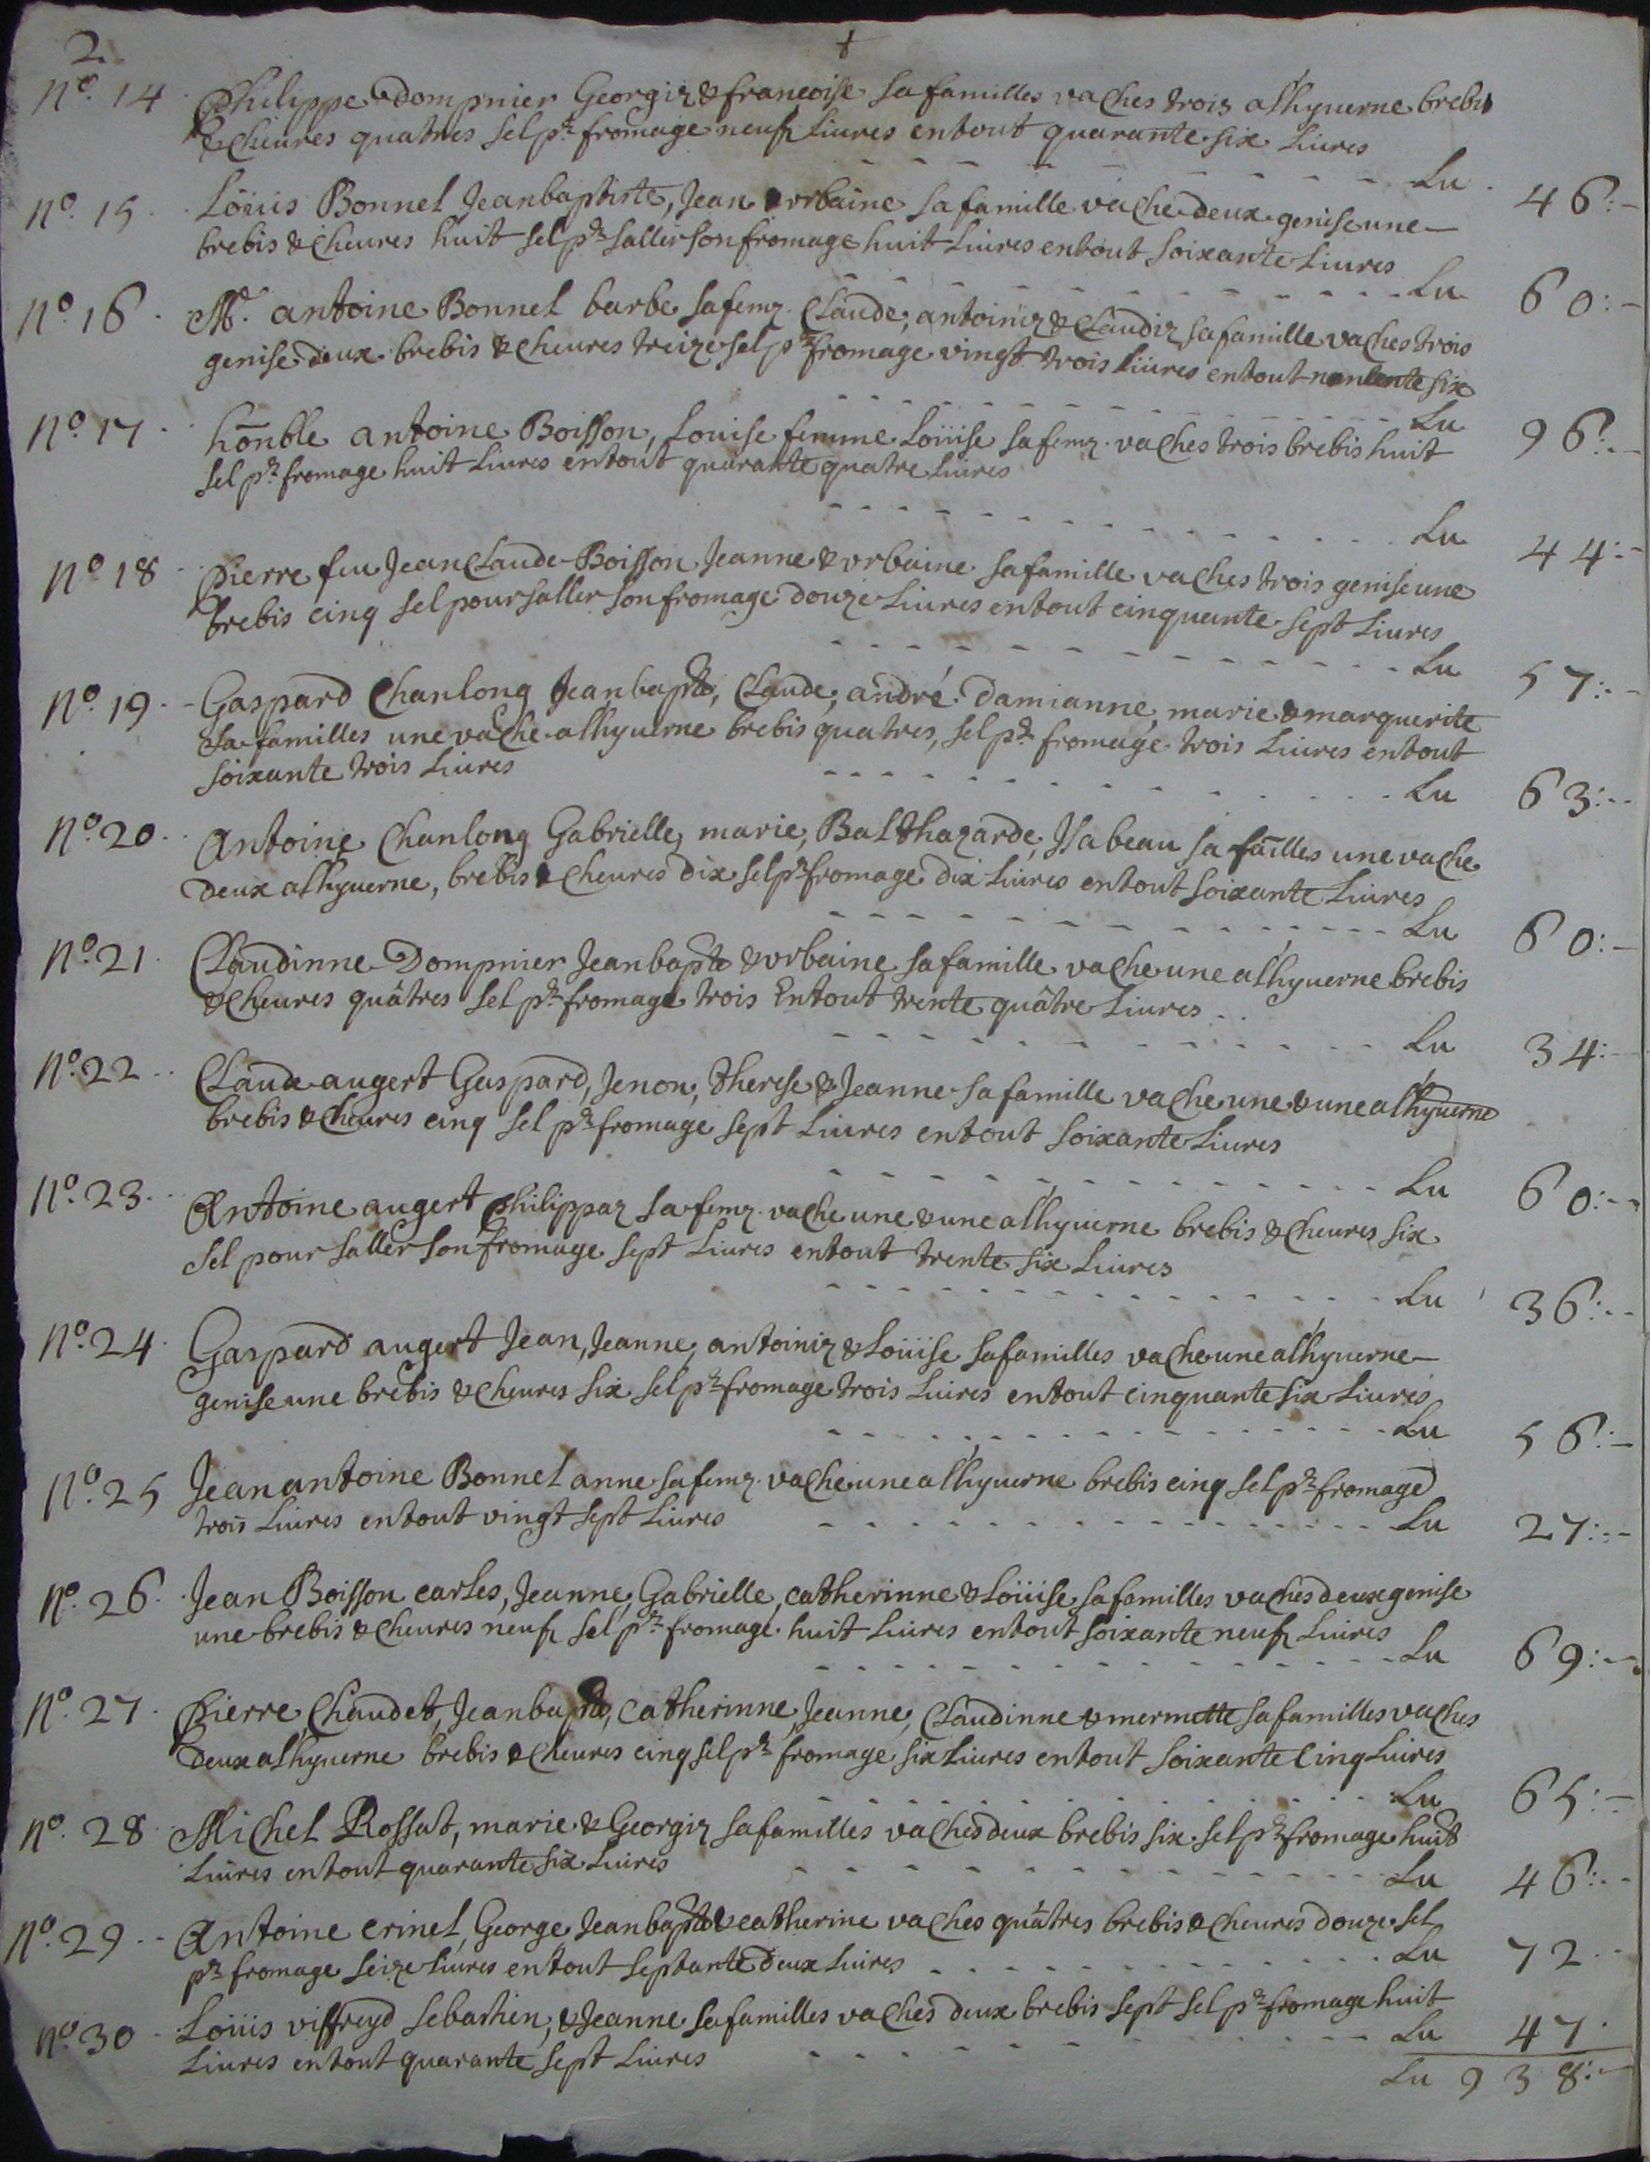 2
+
No. 14 Philippe Dompnier Georgiz & francoise sa familles vaches trois alhyuerne brebis
& cheures quatres sel pr fromage neuf Liures entout quarante six Liures
Lu 46:-
No. 15 Loüis Bonnel Jeanbaptiste, Jean & vrbaine sa famille vache deux genise une
brebis & cheures huit sel pr saller son fromage huit Liures entout soixante Liures
Lu 60:-
No. 16 Mr. antoine Bonnel barbe sa femz. Claude, antoiniz & Claudiz sa famille vaches trois
genise deux brebis & cheures treize sel pr fromage vingt trois Liures entout nonlente six
Lu 96:-
No. 17 honble antoine Boisson, Louise femme Loüise sa femz. vaches trois brebis huit
sel pr fromage huit Liures entout quarante quatre Liures
Lu 44:-
No 18 Pierre feu Jean Claude Boisson Jeanne & vrbaine sa famille vaches trois genise une
brebis cinq sel pour saller son fromage douze Liures entout cinquante sept Liures
Lu 57:-
No. 19 Gaspard Chanlong Jeanbapte, Claude, andré Damianne, marie & marguerite
sa familles une vache alhyuerne brebis quatres, sel pr fromage trois Liures entout
soixante trois Liures
Lu 63:-
No. 20 Antoine Chanlong Gabrielle, marie, Balthazarde, Isabeau sa failles une vache
Deux alhyuerne, brebis & cheures dix sel pr fromage dix Liures entout soixante Liures
Lu 60:-
No. 21 Claudinne Dompnier Jeanbapte & vrbaine sa famille vache une alhyuerne brebis
& cheures quâtres sel pr fromage trois Entout trente quâtre Liures
Lu 34:-
No. 22 Claude augert Gaspard, Jenon, therese & Jeanne sa famille vache une & une alhyuerne
brebis & cheures cinq sel pr fromage sept Liures entout soixante Liures
Lu 60:-
No. 23 Antoine augert philippaz sa femz. vache une & une alhyuerne brebis & cheures six
sel pour saller son fromage sept Liures entout trente six Liures
Lu 36:-
No. 24 Gaspard augert Jean, Jeanne, antoiniz & Loüise sa familles vache une alhyuerne
genise une brebis & cheures six sel pr fromage trois Liures entout cinquante six Liures
Lu 56:-
No. 25 Jean antoine Bonnel anne sa femz. vache une alhyuerne brebis cinq sel pr fromage
trois Liures entout vingt sept Liures Lu 27:-
No. 26 Jean Boisson carles, Jeanne, Gabrielle, catherinne & Loüise sa familles vaches deux genise
une brebis & cheures neuf sel pr fromage huit Liures entout soixante neuf Liures
Lu 69:-
No. 27 Pierre Chaudet, Jeanbapte, catherinne, Jeanne, Claudinne & mermette sa familles vaches
Deux alhyuerne brebis & cheures cinq sel pr fromage six Liures entout soixante Cinq Liures
Lu 65:-
No. 28 Michel Rossat, marie & Georgiz sa familles vaches deux brebis six sel pr fromage huit
Liures entout quarante six Liures Lu 46:-
No. 29 Antoine crinel, George, Jeanbapte & catherine vaches quâtres brebis & cheures douze sel
pr fromage seize Liures entout septante Deux Liures Lu 72
No. 30 Loüis viffreyd sebastien, & Jeanne sa familles vaches deux brebis sept sel pr fromage huit
Liures entout quarante sept Liures Lu 47
Lu 938:-